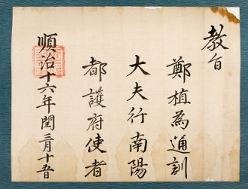 教旨
鄭植為通訓
大夫行南陽
都護府使者
順治十六年閏三月十五日